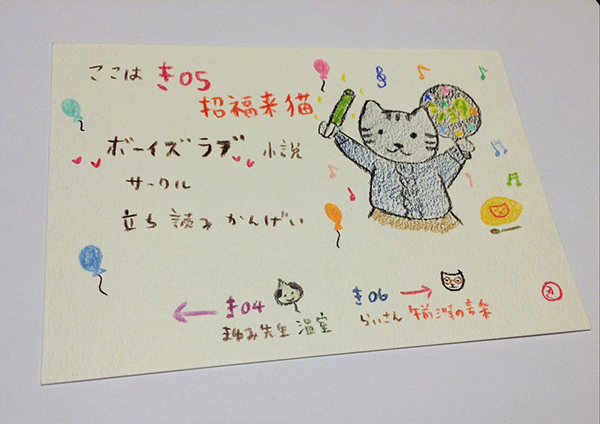 ここは き05
招福来猫
ボーイズラブ 小説
サークル
立ち読み かんげい
← き04
まゆみ先生 温室
き06 →
らいさん 午前三時の音楽